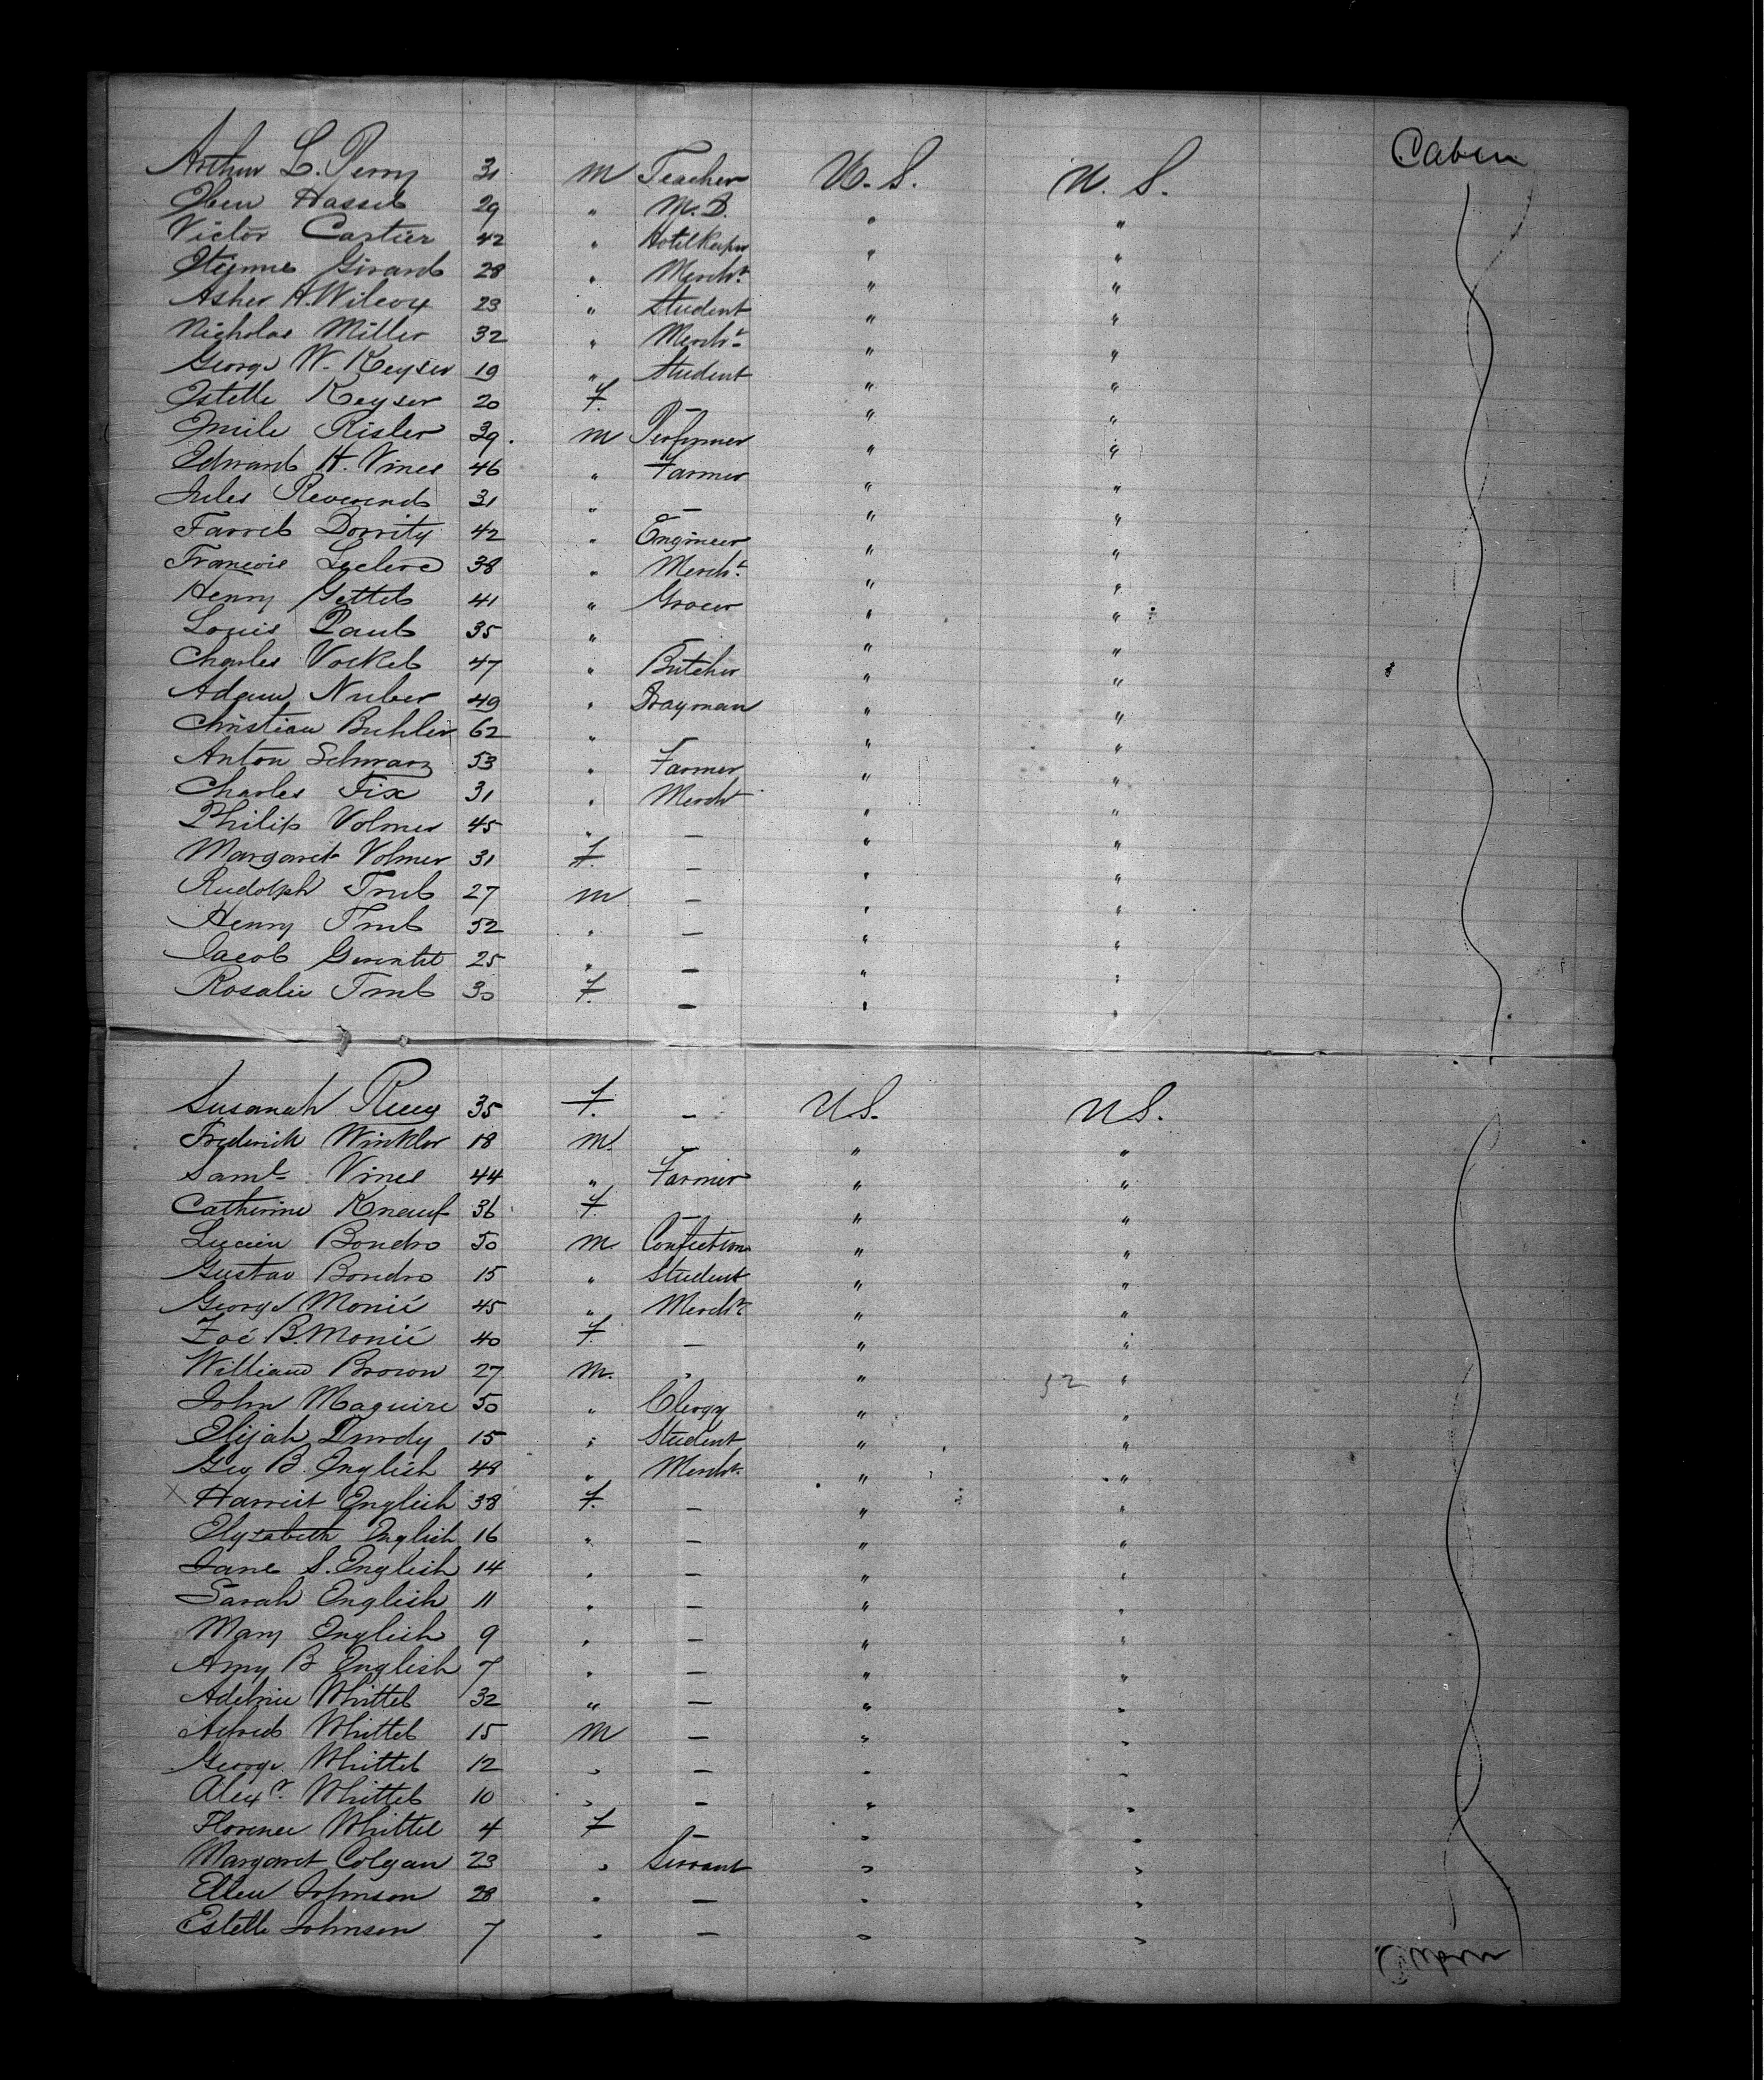 Cabin
Arthur L. Perry 31 m Teacher U. S. U. S.
Eben Hassel 29 " M.D. " "
Victor Cartier 42 " Hotelkeeper " "
Etienne Girard 28 " Mercht. " "
Asher H. Wilcox 23 " Student " "
Nicholas Miller 32 " Mercht. " "
George W. Keyser 19 " Student " "
Estelle Keyser 20 F. — " "
Emile Risler 39. m Perfumer " "
Edward H. Vines 46 " Farmer " "
Jules Reverend 31 " — " "
Farrel Dorrity 42 " Engineer " "
Francois Leclerc 38 " Mercht. " "
Henry Gettel 41 " Grocer " "
Louis Paul 35 " " "
Charles Vockel 47 " Butcher " "
Adam Nuber 49 " Drayman " "
Christian Buhler 62 " " "
Anton Schwarz 53 " Farmer " "
Charles Fix 31 " Mercht " "
Philip Volmer 45 " — " "
Margaret Volmer 31 F. — " "
Rudolph 27 m — " "
Henry 52 " — " "
Jacob 25 " — " "
Rosalie 30 F. — " "
Susanah 35 F. — U S. U S.
Frederick Winkler 18 m. " "
Saml. Vines 44 " Farmer " "
Catherine Knauf 36 F. — " "
Lucien Bondro 50 m. " "
Gustav Bondro 15 " Student " "
George Monié 45 " Mercht. " "
Zoé B. Monié 40 F. — " "
William Brown 27 m. " " "
John Maguire 50 " Clergy " "
Elijah Purdy 15 " Student " "
Geo B. English 48 " Mercht. " "
Harriet English 38 F. — " "
Elyzabeth English 16 " — " "
Jane S. English 14 " — " "
Sarah English 11 " — " "
Mary English 9 " — " "
Amy B English 7 " — " "
Adelnie Whittel 32 " — " "
Alfred Whittel 15 m — " "
George Whittel 12 " — " "
Alexr. Whittel 10 " — " "
Florence Whittel 4 F — " "
Margaret Colgan 23 " Servant " "
Ellen Johnson 28 " — " "
Estelle Johnson 7 " — " "